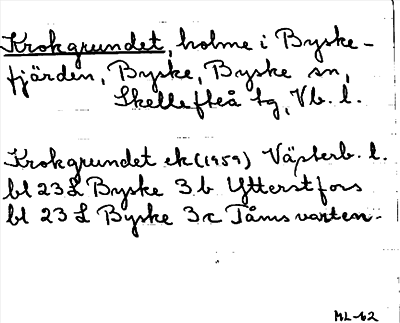 Krokgrundet, holme i Byske-
fjärden, Byske, Byske sn,
Skellefteå tg, Vb. l.
Krokgrundet ek (1959) Västerb. l.
bl 23 L Byske 3 b Ytterstfors
bl 23 L Byske 3 c Tåmsvarten.
ML-62